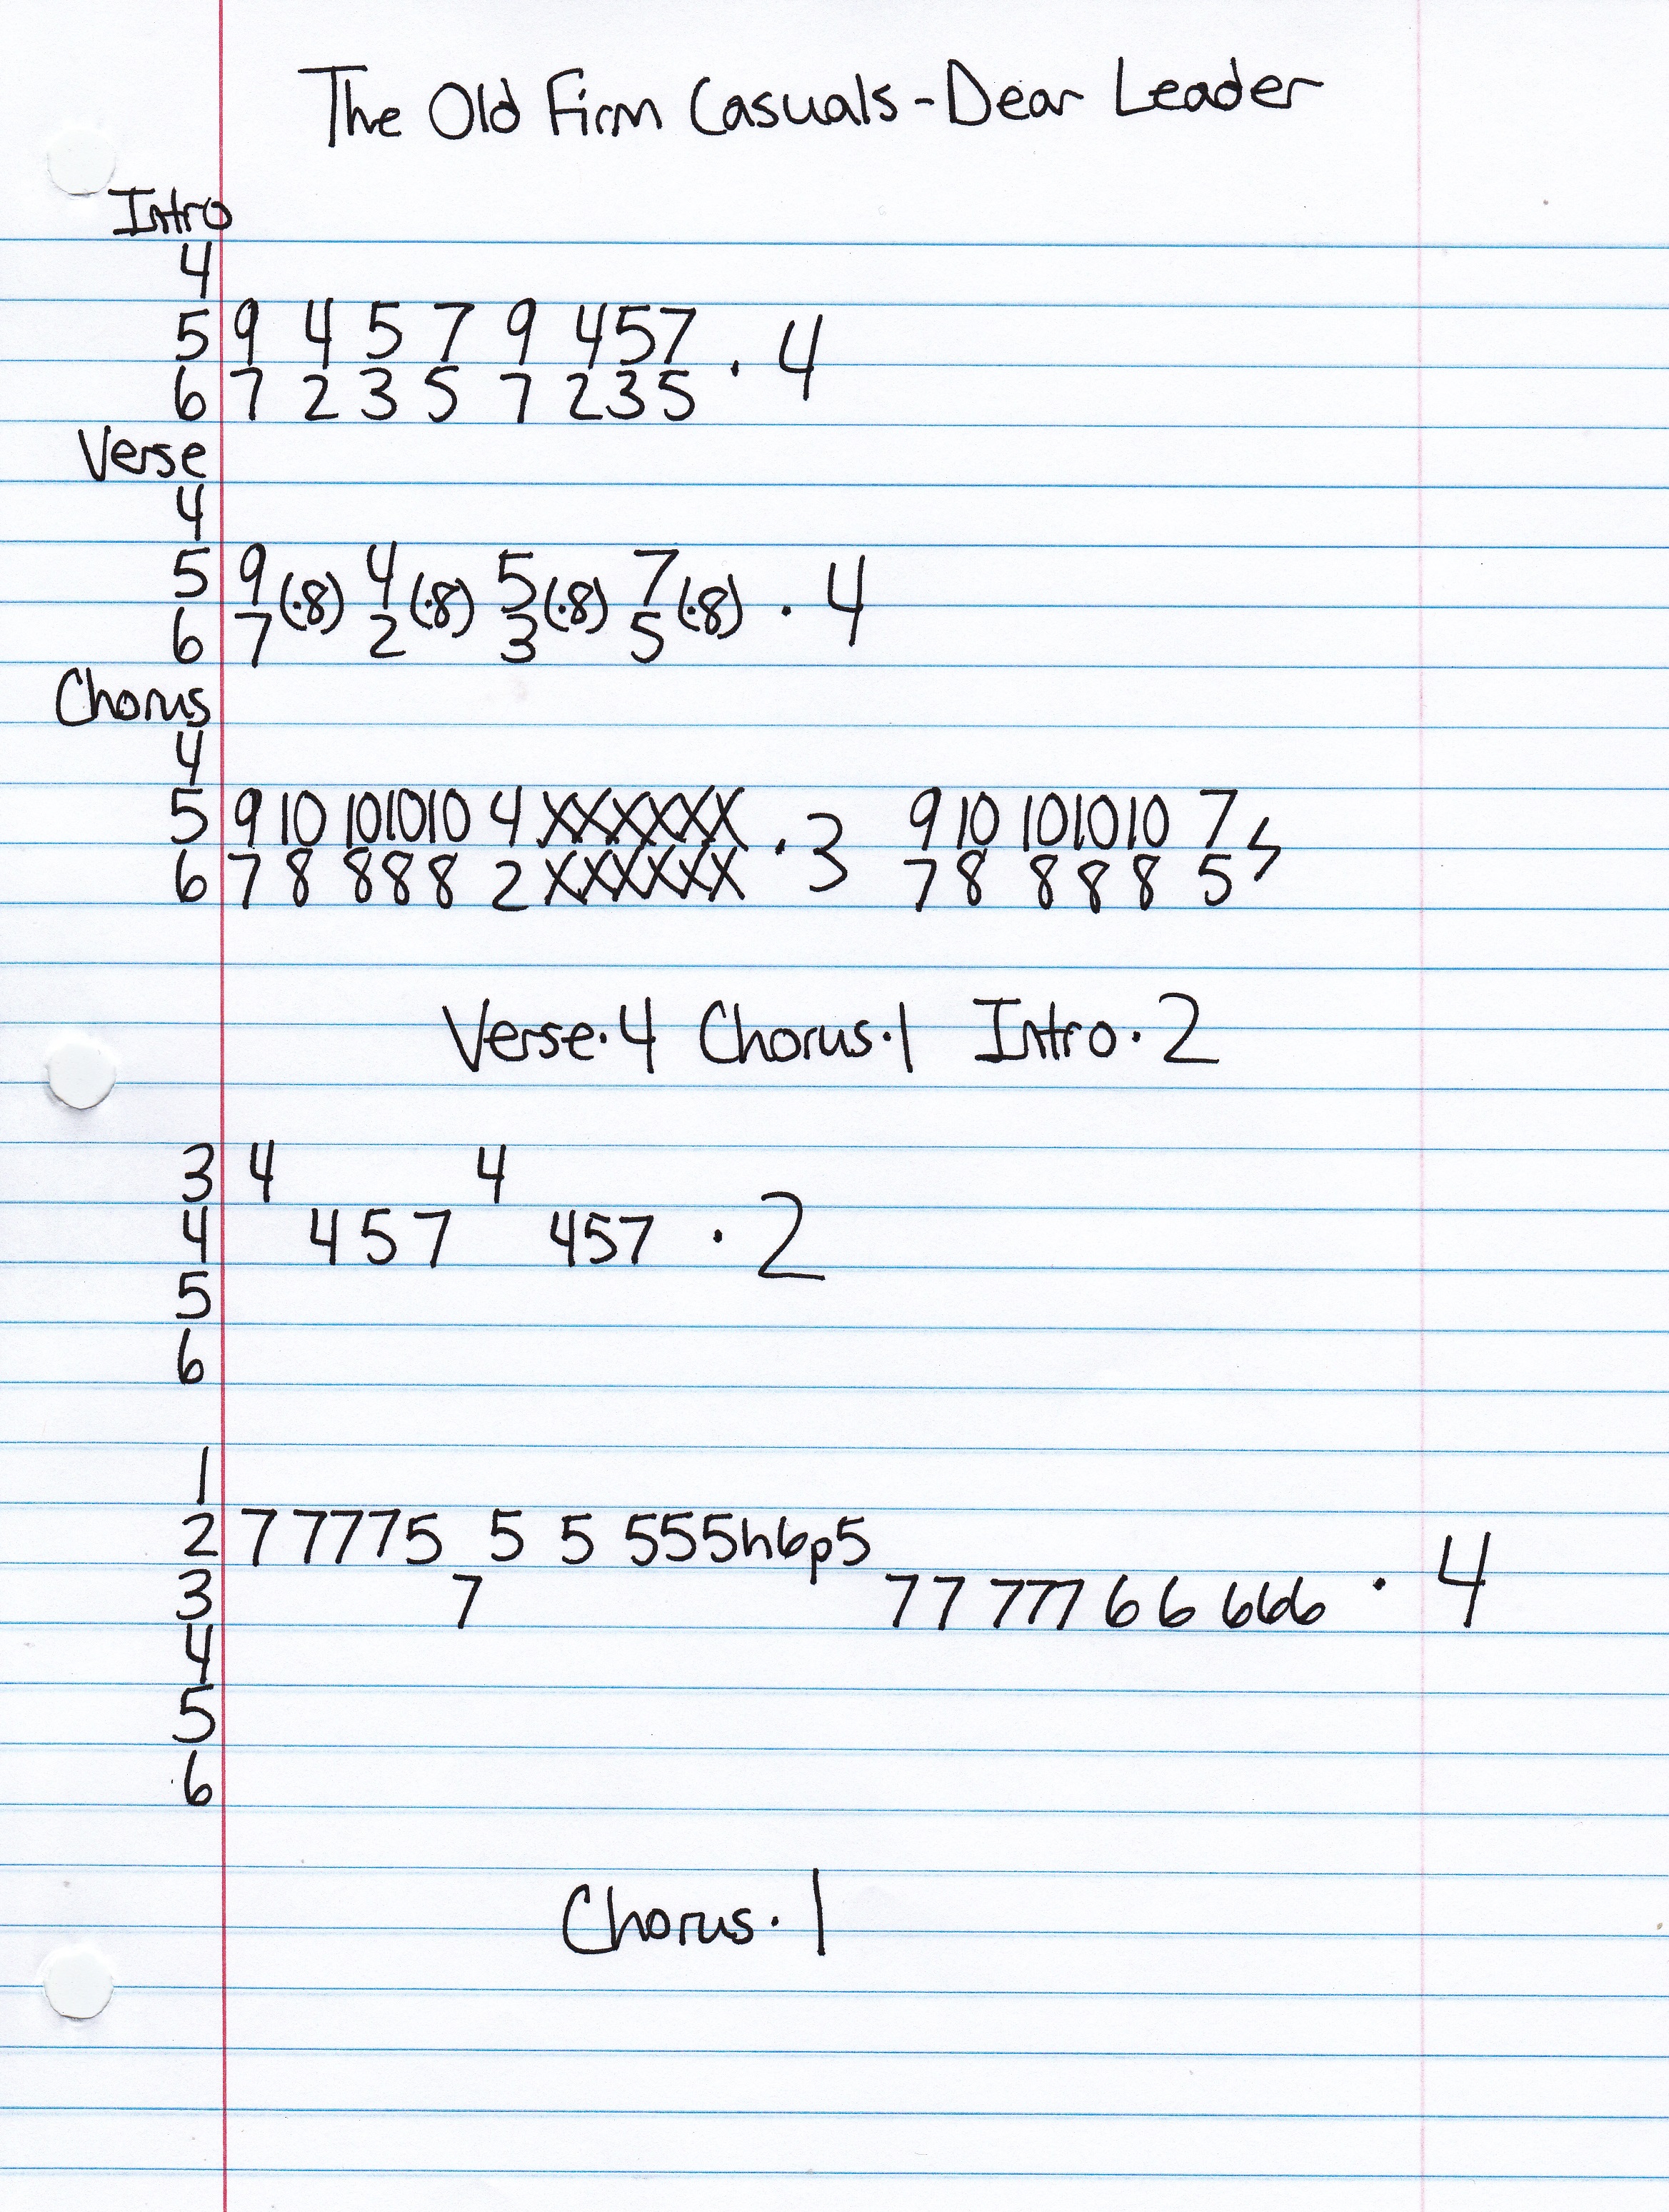 The Old Firm Casuals - Dear Leader
Intro
4
5 9 4 5 7 9 457 · 4
6 7 2 3 5 7 235
Verse
4
5 9 (·8) 4 (·8) 5 (·8) 7 (·8) · 4
6 7 2 3 5
Chorus
4
5 9 10 101010 4 XXXXXX · 3 9 10 101010 7
6 7 8 888 2 XXXXXX 7 8 8 8 8 5
Verse·4 Chorus·1 Intro·2
3 4 4
4 4 5 7 457 · 2
5
6
1
2 7 7775 5 5 555h6p5
3 7 77 777 66 666 · 4
4
5
6
Chorus·1